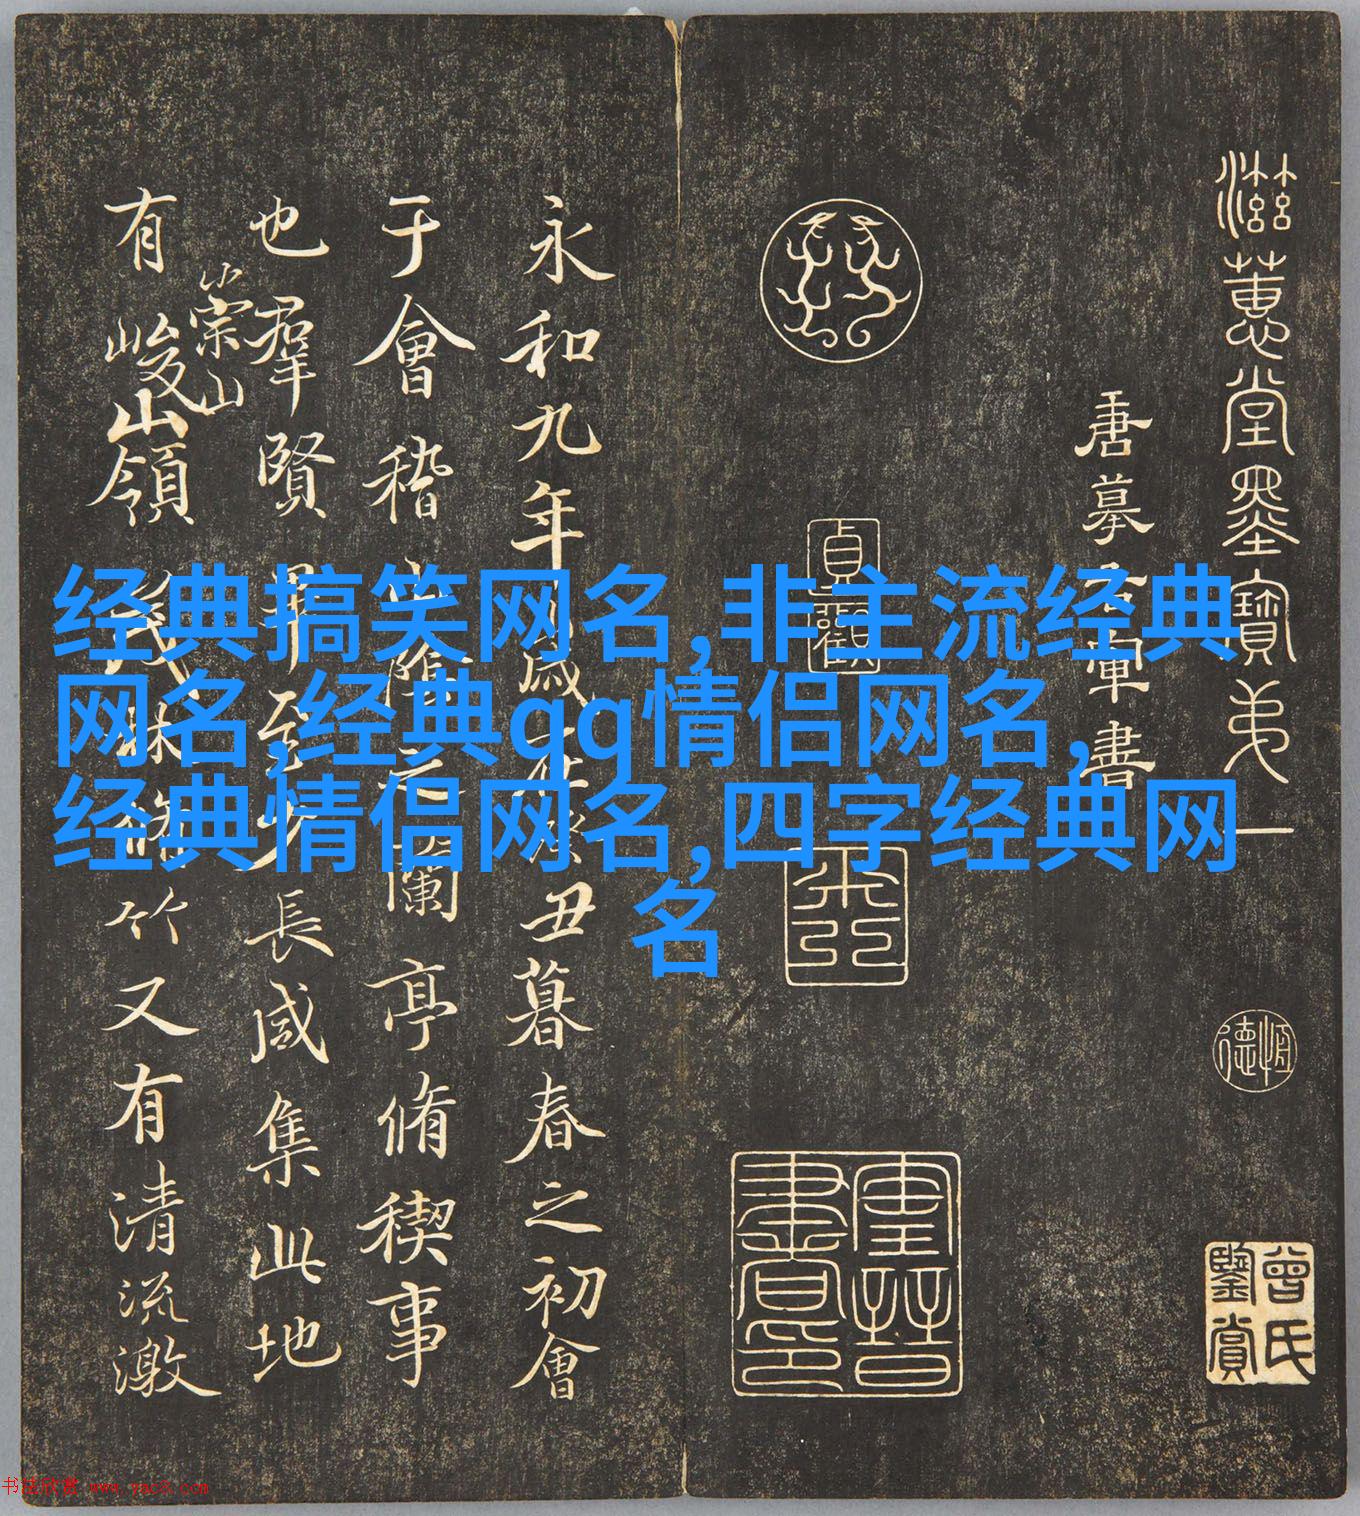 滋蕙堂墨寶弟一
唐摹右軍書
貞觀
恆德
曾氏鑒賞
永和九年歲在癸丑暮春之初會
于會稽山陰之蘭亭脩稧事
也羣賢畢至少長咸集此地
有崇山峻領茂林脩竹又有清流激
经典搞笑网名,非主流经典
网名,经典qq情侣网名,
经典情侣网名,四字经典网
名
书法欣赏 www.yac8.com